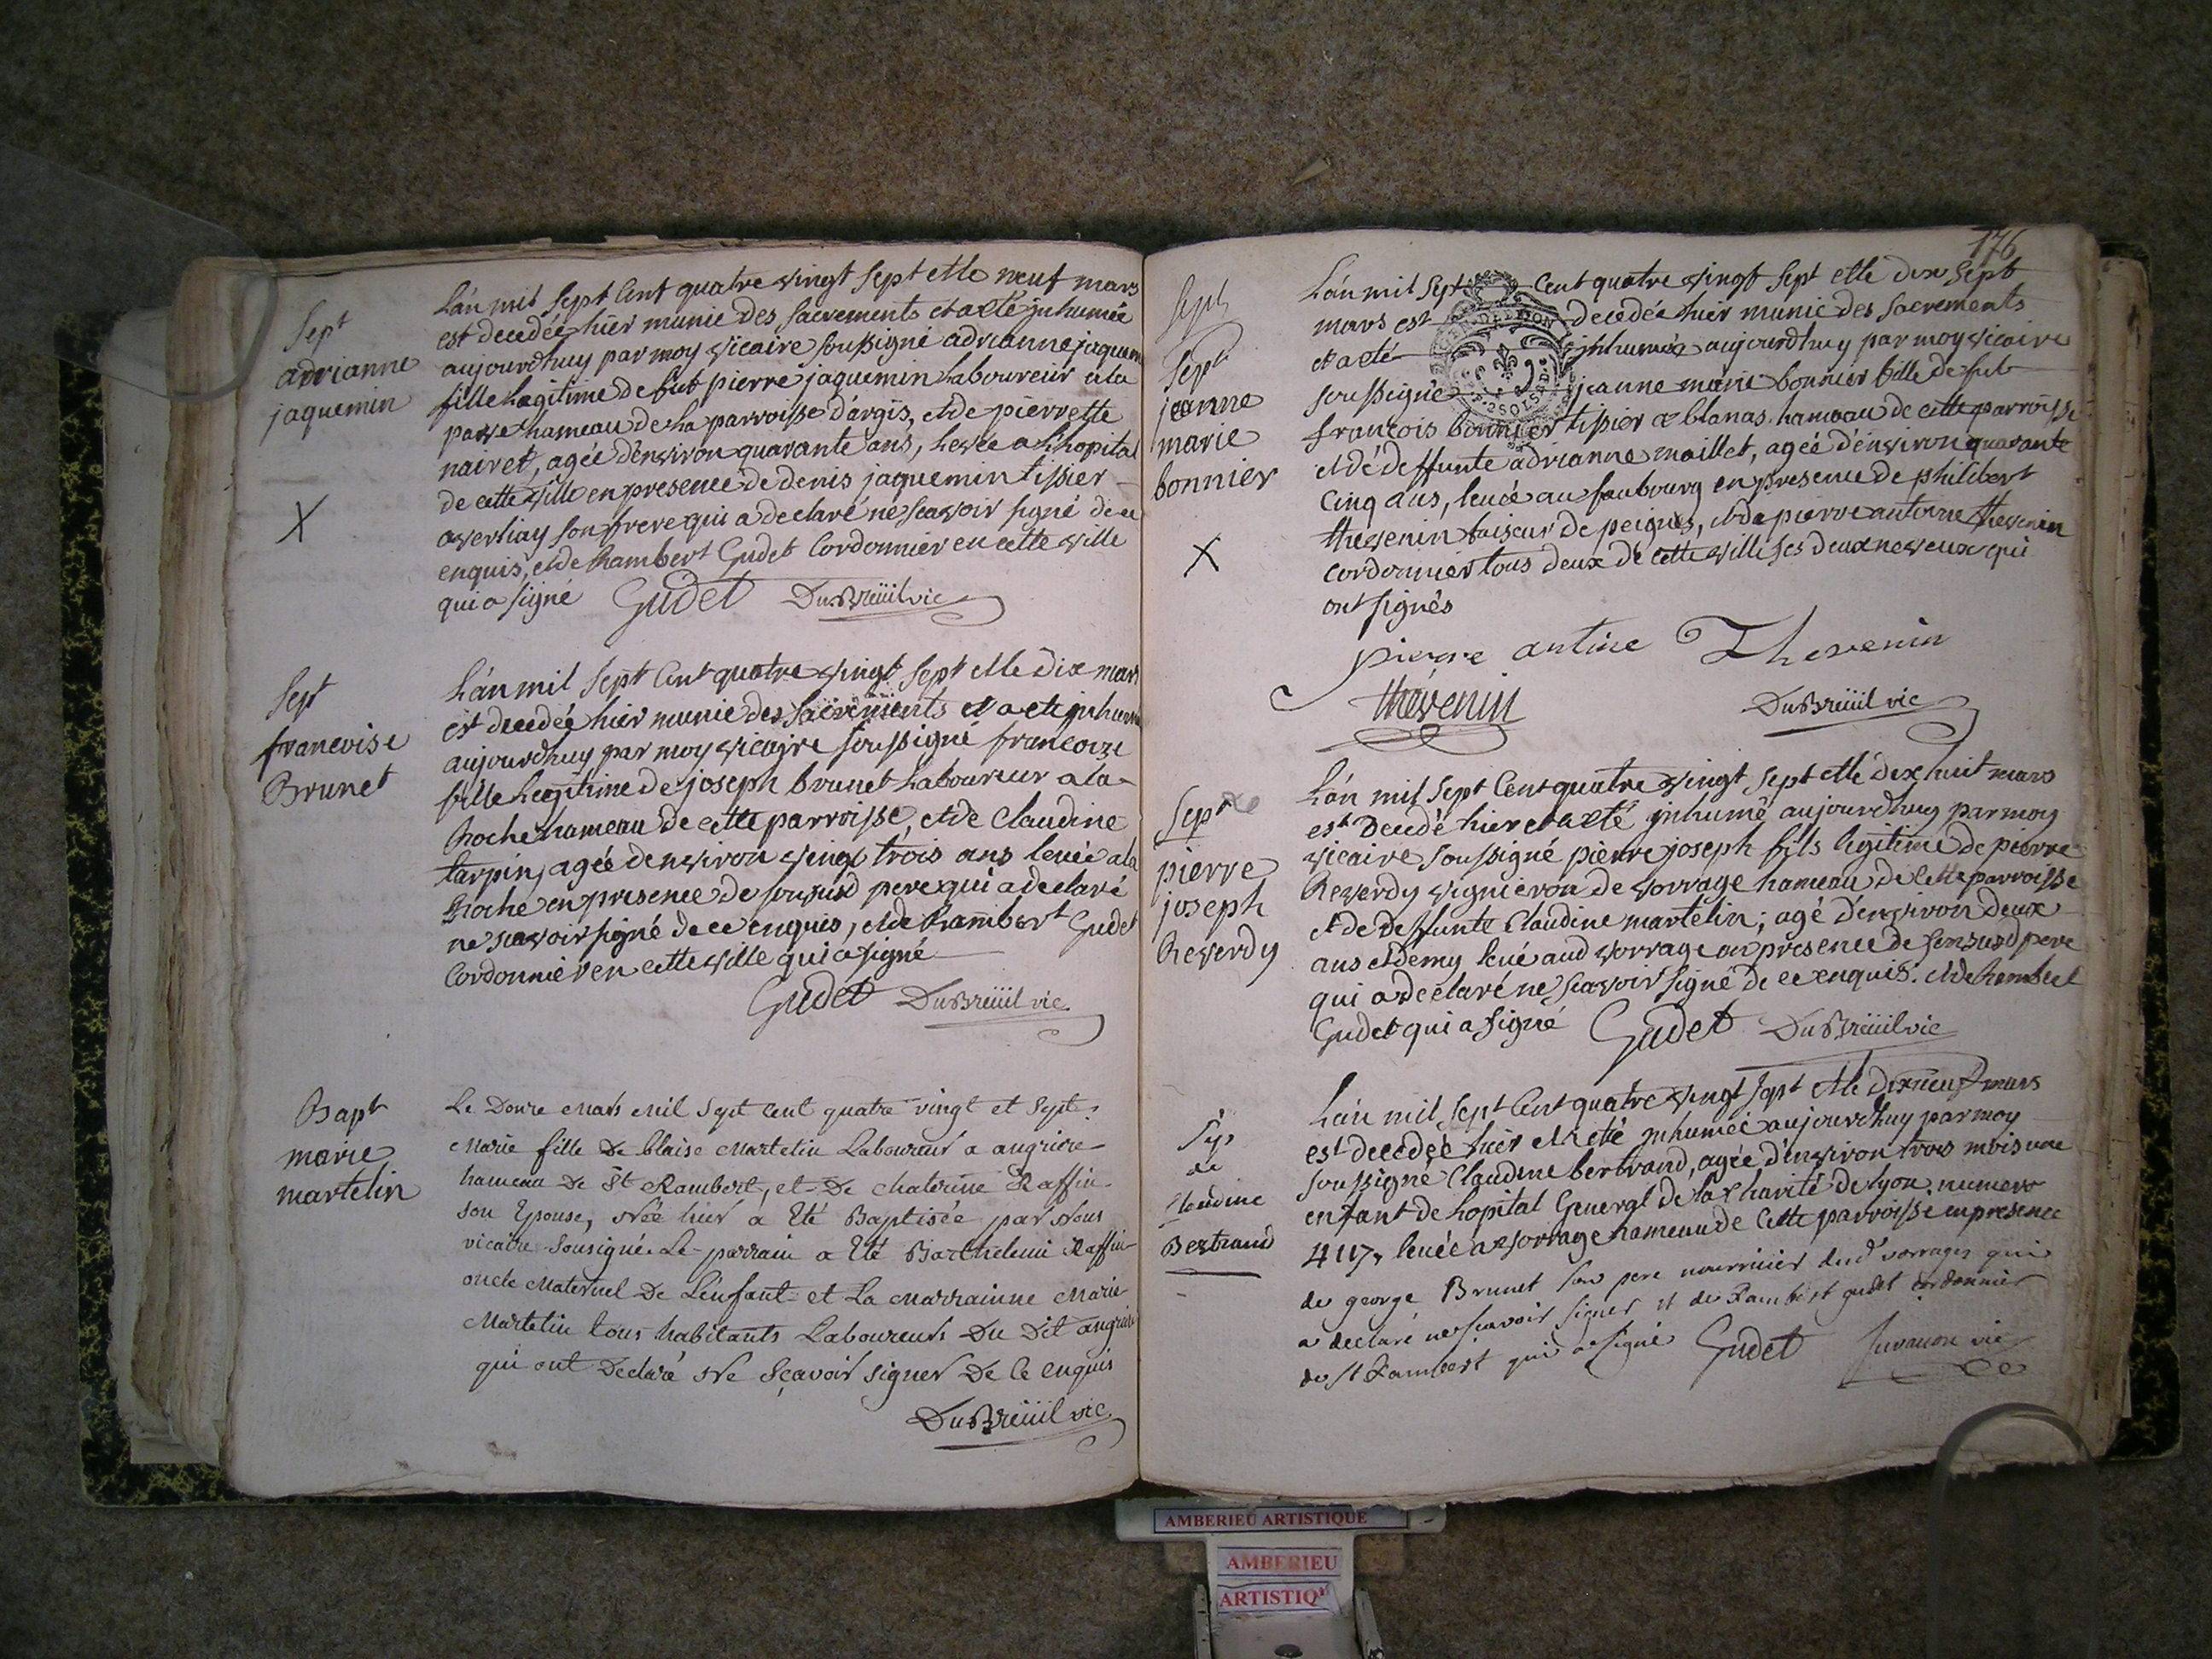 Sept
adrianne
jaquemin
X
L'an mil sept Cent quatre vingt sept et le neuf mars
est decedée hier munie des sacrements et a eté inhumée
aujourdhuy par moy vicaire soussigné adrianne jaquemin
fille Legitime de fut pierre jaquemin Laboureur a la
pave hameau de La parroisse d'argis, et de pierrette
nairet, agée d'environ quarante ans, levée a L'hopital
de cette ville en presence de denis jaquemin tissier
averliay son frere qui a declaré ne scavoir signé de ce
enquis, et de Rambert Gudet Cordonnier en cette ville
qui a signé Gudet DuBreüil vic
Sept
francoise
Brunet
L'an mil sept Cent quatre vingt sept et le dix mars
est decedée hier munie des sacrements et a eté inhumée
aujourdhuy par moy vicaire soussigné francoize
fille Legitime de joseph brunet Laboureur a la
Roche hameau de cette parroisse, et de Claudine
tarpin, agée denviron vingt trois ans levée a la
Roche en presence de son susd pere qui a declaré
ne scavoir signé de ce enquis, et de Rambert Gudet
Cordonnier en cette ville qui a signé
Gudet DuBreüil vic
Bapt
marie
martelin
Le Douze Mars Mil Sept Cent quatre vingt et Sept
Marie fille De blaise Martelin Laboureur a angriere
hameau De St Rambert, et De Chaterine Raffin
son Epouse, Née hier a Eté Baptisée par Nous
vicaire Sousigné. Le parrain a Eté Barthelemi Raffin
oncle Maternel De L'enfant et La Marrainne Marie
Martelin tous habitants Laboureurs Du Dit angriere
qui ont Declaré Ne Sçavoir signer De Ce enquis
DuBreüil vic
176
Sept
Sept
jeanne
marie
bonnier
X
L'an mil Sept Cent quatre vingt sept et le dix sept
mars est decedée hier munie des sacrements
et a eté inhumée aujourdhuy par moy vicaire
soussigné jeanne marie bonnier fille de fut
francois bonnier tissier a blanas hameau de cette parroisse
et de deffunte adrianne maillet, agée d'environ quarante
Cinq ans, levée au faubourg en presence de philibert
thevenin faiseur de peignes, et de pierre antoine thevenin
cordonnier tous deux de cette ville ses deux neveux qui
ont signés
pierre antine Thevenin
thévenin DuBreüil vic
Sept
pierre
joseph
Reverdy
L'an mil sept Cent quatre vingt sept et le dix huit mars
est Decedé hier et a eté inhumé aujourdhuy par moy
vicaire soussigné pierre joseph fils legitime de pierre
Reverdy vigneron de vorrage hameau de cette parroisse
et de deffunte Claudine martelin, agé d'environ deux
ans et demy levé aud vorrage en presence de son susd pere
qui a declaré ne scavoir signé de ce enquis. et de Rambert
Gudet qui a signé Gudet DuBreüil vic
Sep
de
Claudine
Bertrand
L'an mil sept Cent quatre vingt sept et le dix neuf mars
est decedée hier et a eté inhumée aujourdhuy par moy
soussigné Claudine bertrand, agée d'environ trois mois une
enfant de hopital General de la Charité de lyon numero
4117, levée a vorrage hameau de cette parroisse en presence
de george Brunet son pere nourricier dud vorrages qui
a declaré ne scavoir signer et de Rambert gudet cordonnier
de St Rambert qui a signé Gudet vic
AMBERIEU ARTISTIQUE
AMBERIEU
ARTISTIQ